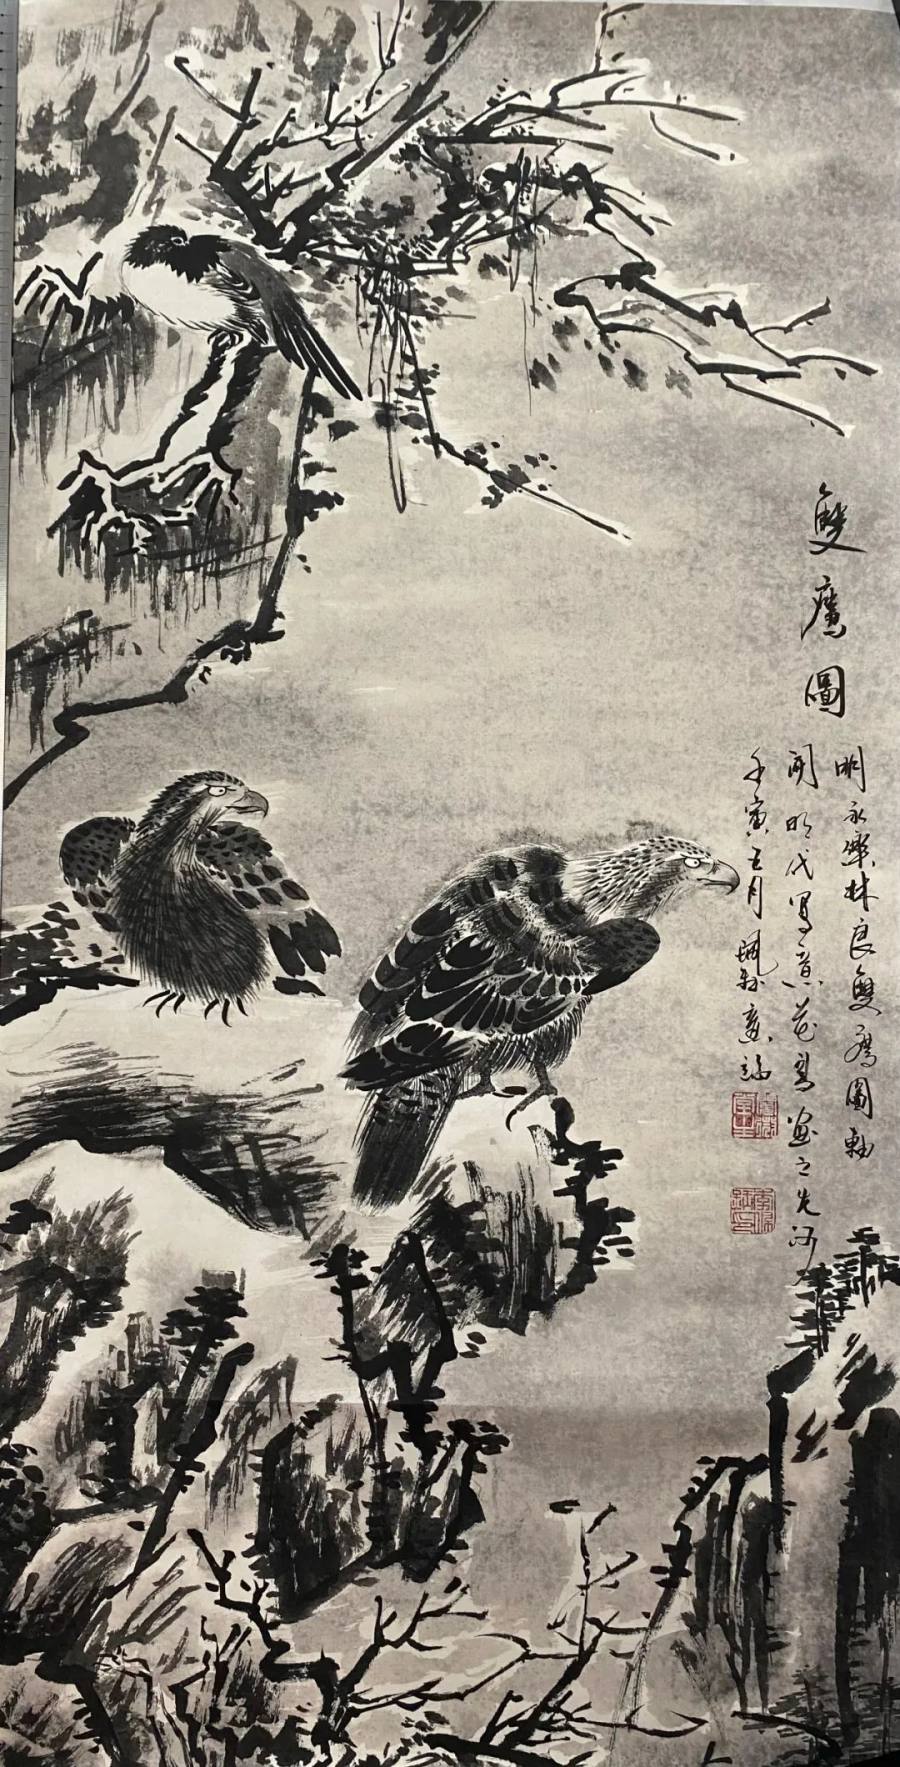 雙鷹圖
明永樂林良雙鷹圖軸
開明代寫意花鳥畫之先河
壬寅五月珮林意臨